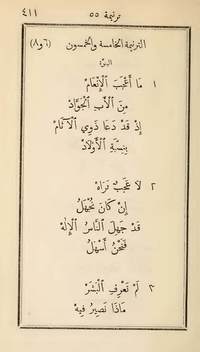 ترنيمة ٥٥ ٤١١
الترنيمة الخامسة والخمسون (٦و٨)
١ مَا أَعْجَبَ ٱلْإِنْعَامْ
مِنَ ٱلْأَبِ ٱلْجَوَّادْ
إِذْ قَدْ دَعَا ذَوِي ٱلْآثَامْ
بِنِسْبَةِ ٱلْأَوْلَادْ
٢ لَا عَجَبٌ تَرَاهْ
إِنْ كَانَ نُجْهَلُ
قَدْ جَهِلَ ٱلنَّاسُ ٱلْإِلٰهْ
فَنَحْنُ أَسْهَلُ
٣ لَمْ تَعْرِفِ ٱلْبَشَرْ
مَاذَا نَصِيرُ فِيهْ